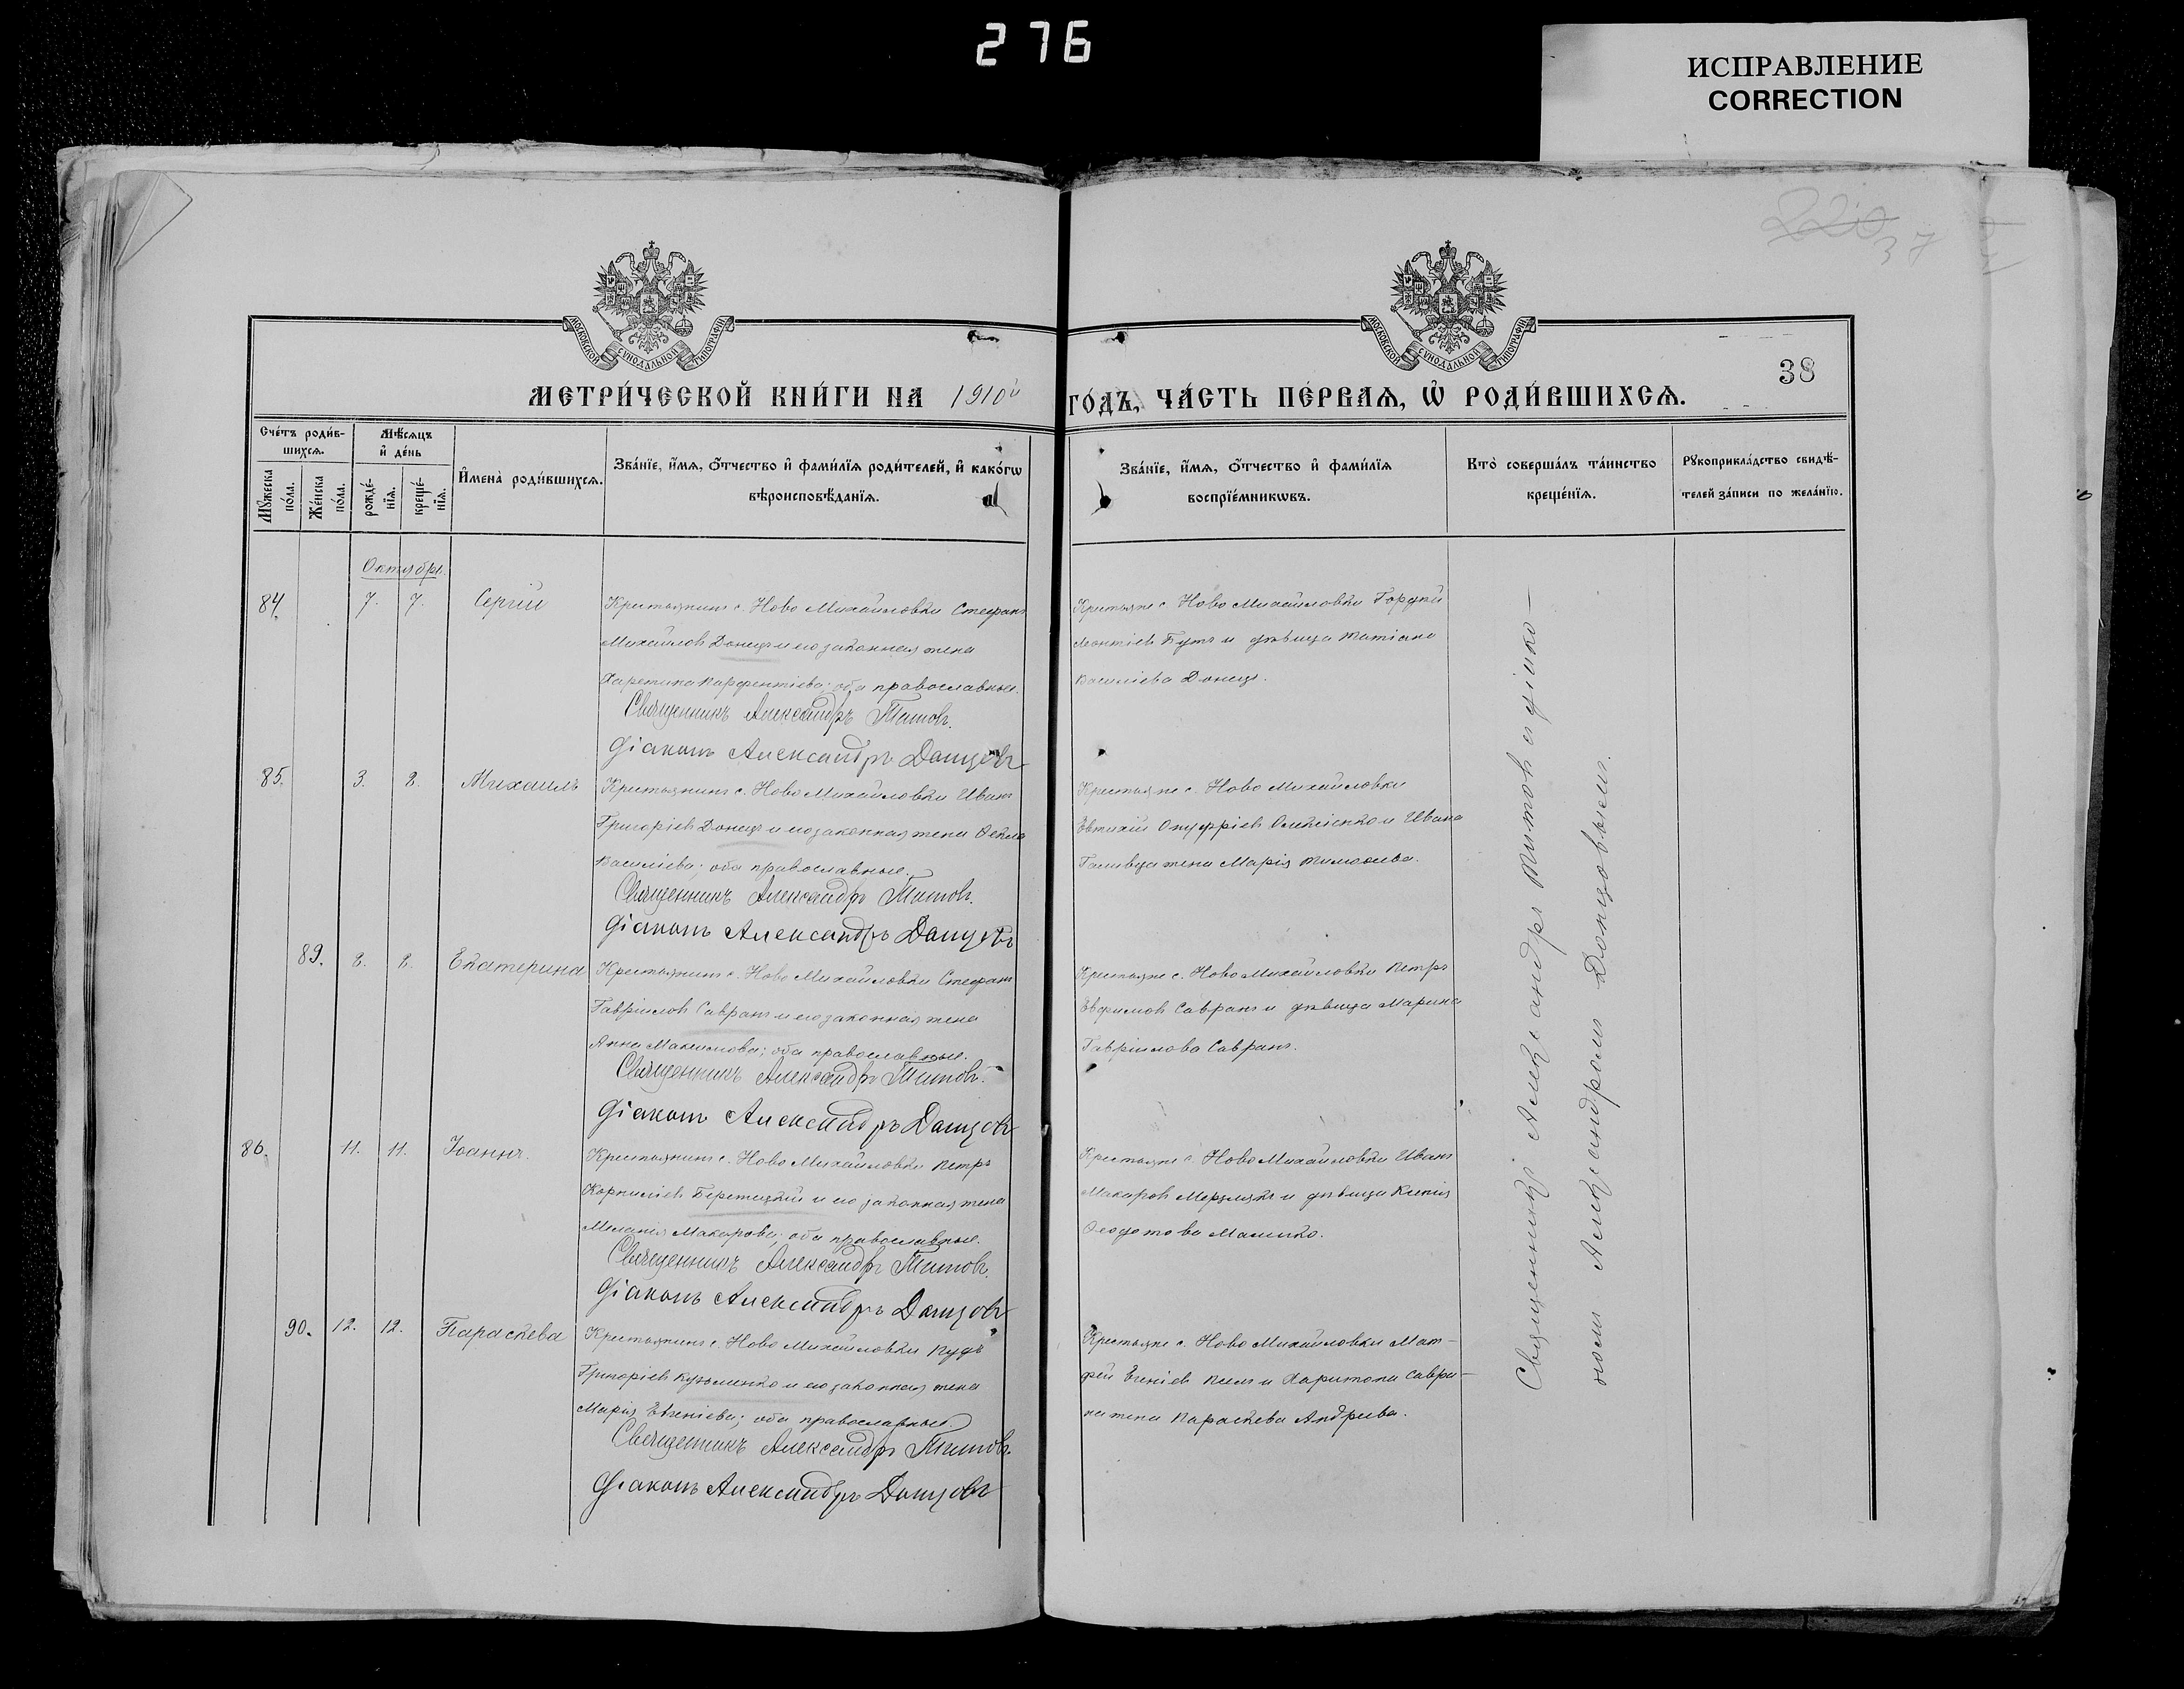 276
ИСПРАВЛЕНИЕ
CORRECTION
220
37
38
МОСКОВСКОЙ СѴНОДАЛЬНОЙ ТИПОГРАФІИ
МОСКОВСКОЙ СѴНОДАЛЬНОЙ ТИПОГРАФІИ
МЕТРИ́ЧЕСКОЙ КНИ́ГИ НА 1910й ГО́ДЪ, ЧА́СТЬ ПЕ́РВАѦ, Ѡ҆ РОДИ́ВШИХСѦ.
Сче́тъ роди́в-
шихсѧ.
Мꙋ́жеска по́ла.
Же́нска по́ла.
Мѣ́сѧцъ
и҆ де́нь
рожде́-нїѧ.
креще́-нїѧ.
И҆мена̀ роди́вшихсѧ.
Зва́нїе, и҆́мѧ, ѻ҆́тчество и҆ фами́лїѧ роди́телей, и҆ како́гѡ
вѣроисповѣ́данїѧ.
Зва́нїе, и҆́мѧ, ѻ҆́тчество и҆ фами́лїѧ
воспрїе́мникѡвъ.
Кто̀ соверша́лъ та́инство
креще́нїѧ.
Рꙋкоприкла́дство свидѣ́-
телей за́писи по жела́нїю.
Октябрь.
84. 7. 7. Сергій
Крестьянинъ с. Ново Михайловки Стефанъ
Михайловъ Донецъ и его законная жена
Харетина Парфентіева; оба православные.
Священникъ Александръ Титовъ.
Діаконъ Александръ Донцовъ
Крестьяне с. Ново Михайловки Гордѣй
Леонтіевъ Бутъ и дѣвица Татіана
Василіева Донецъ.
85. 3. 8. Михаилъ
Крестьянинъ с. Ново Михайловки Иванъ
Григоріевъ Донецъ и его законная жена Ѳекла
Василіева; оба православные.
Священникъ Александръ Титовъ.
Діаконъ Александръ Донцовъ
Крестьяне с. Ново Михайловки
Евтихій Онуфріевъ Олексіенко и Ивана
жена Марія Тимоѳеева.
89. 8. 8. Екатерина
Крестьянинъ с. Ново Михайловки Стефанъ
Гавріиловъ Савранъ и его законная жена
Анна Максимова; оба православные.
Священникъ Александръ Титовъ.
Діаконъ Александръ Донцовъ
Крестьяне с. Ново Михайловки Петръ
Евфимовъ Савранъ и дѣвица Марина
Гавріилова Савранъ.
86. 11. 11. Іоаннъ.
Крестьянинъ с. Ново Михайловки Петръ
Корниліевъ и его законная жена
Меланія Макарова; оба православные.
Священникъ Александръ Титовъ.
Діаконъ Александръ Донцовъ
Крестьяне с. Ново Михайловки Иванъ
Макаровъ Мерзлякъ и дѣвица Ксенія
Ѳеодотова
90. 12. 12. Параскева
Крестьянинъ с. Ново Михайловки Пудъ
Григоріевъ Кузьменко и его законная жена
Марія Евгеніева; оба православные.
Священникъ Александръ Титовъ.
Діаконъ Александръ Донцовъ
Крестьяне с. Ново Михайловки Мат-
фей и Харитона Савра-
на жена Параскева Андреева.
Священникъ Александръ Титовъ съ діако-
номъ Александромъ Донцовымъ.